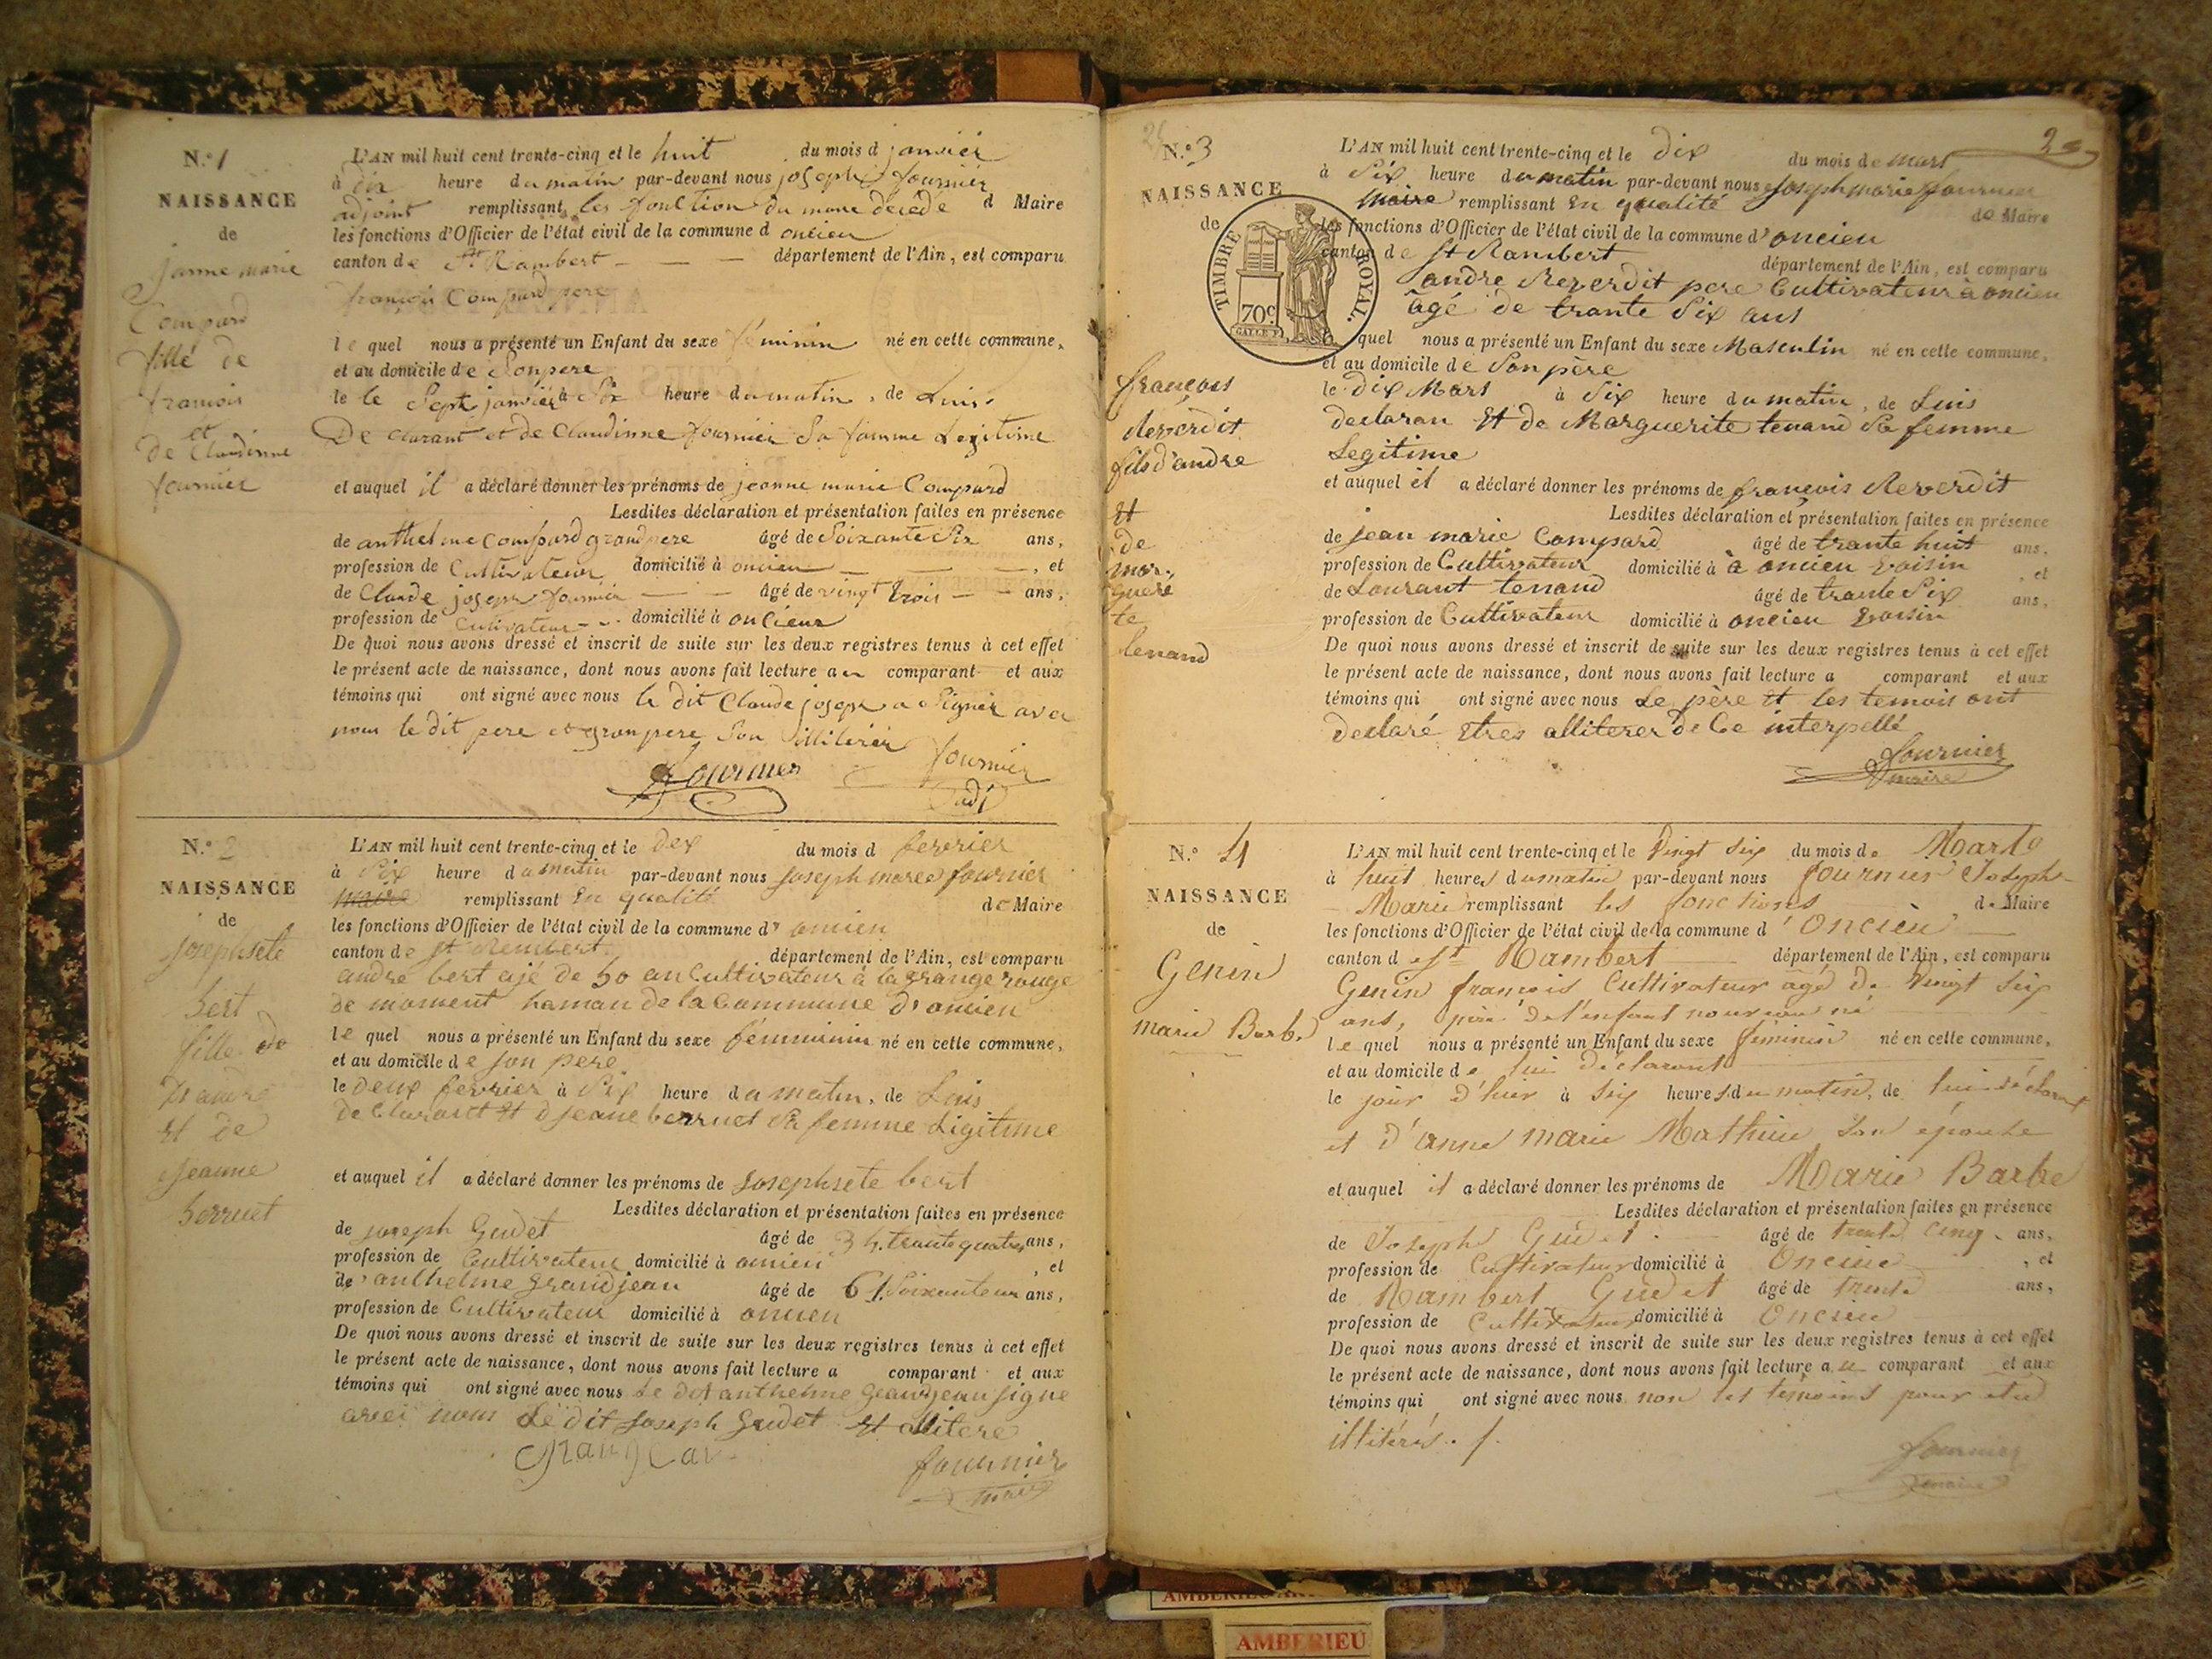 N.º 1
NAISSANCE
de
janne marie
Compard
fille de
francois
et
de Claudinne
fournier
L'AN mil huit cent trente-cinq et le huit du mois d janvier
à dix heure du matin par-devant nous joseph fournier
adjoint remplissant les fonction du maire décédé d Maire
les fonctions d'Officier de l'état civil de la commune d oncieu
canton de St Rambert département de l'Ain, est comparu
francois Compard pere
le quel nous a présenté un Enfant du sexe féminin né en cette commune,
et au domicile de Son pere
le le Sept janvier à Six heure du matin, de Luis
De clarant et de Claudinne fournier Sa famme Legitime
et auquel il a déclaré donner les prénoms de jeanne marie Compard
Lesdites déclaration et présentation faites en présence
de anthelme Compard grand pere âgé de Soixante Six ans,
profession de Cultivateur domicilié à oncieu, et
de Claude joseph fournier âgé de vingt trois ans,
profession de Cultivateur domicilié à oncieux
De quoi nous avons dressé et inscrit de suite sur les deux registres tenus à cet effet
le présent acte de naissance, dont nous avons fait lecture au comparant et aux
témoins qui ont signé avec nous le dit Claude joseph a Signer avec
nous le dit pere et gran pere Son illiterer
fournier fournier
adj
N.º 2
NAISSANCE
de
josephsete
bert
fille de
andre
Et de
Jeanne
berruet
L'AN mil huit cent trente-cinq et le dex du mois d fevrier
à Six heure du matin par-devant nous Joseph marie fournier
maire remplissant En qualité de Maire
les fonctions d'Officier de l'état civil de la commune d' oncieu
canton de St Rembert département de l'Ain, est comparu
andre bert ajé de 50 an Cultivateur à la grange rouge
de moment haman de la Commune d'oncieu
le quel nous a présenté un Enfant du sexe femminin né en cette commune,
et au domicile de son pere
le deux fevrier à Six heure du matin, de Luis
de Clarant Et d Jeane berruet Sa femme Ligitime
et auquel il a déclaré donner les prénoms de Josephsete bert
Lesdites déclaration et présentation faites en présence
de joseph Gudet âgé de 34. trante quatres ans,
profession de Cultivateur domicilié à oncieu, et
de anthelme grandjean âgé de 61 Soixanteun ans,
profession de Cultivateur domicilié à oncieu
De quoi nous avons dressé et inscrit de suite sur les deux registres tenus à cet effet
le présent acte de naissance, dont nous avons fait lecture a comparant et aux
témoins qui ont signé avec nous Le dit anthelme Grandjean signe
avec nous Le dit Joseph Gudet Et allitere
fournier
maire
25
2
N.º 3
NAISSANCE
de
TIMBRE ROYAL.
70c
francois
Reverdit
fils d'andre
Et
de
mar
guere
te
tenand
L'AN mil huit cent trente-cinq et le dix du mois de mars
à Six heure du matin par-devant nous Joseph marie fournier
maire remplissant En qualité de Maire
les fonctions d'Officier de l'état civil de la commune d' oncieu
canton de St Rambert département de l'Ain, est comparu
andre Reverdit pere Cultivateur à oncieu
âgé de trante Six ans
quel nous a présenté un Enfant du sexe Masculin né en cette commune,
et au domicile de Son père
le dix Mars à Six heure du matin, de Luis
declaran Et de Marguerite tenand Sa femme
Legitime
et auquel il a déclaré donner les prénoms de françois Reverdit
Lesdites déclaration et présentation faites en présence
de jean marie Compard âgé de trante huit ans,
profession de Cultivateur domicilié à à oncieu voisin, et
de Lourant tenand âgé de trante Six ans,
profession de Cultivateur domicilié à oncieu voisin
De quoi nous avons dressé et inscrit de suite sur les deux registres tenus à cet effet
le présent acte de naissance, dont nous avons fait lecture a comparant et aux
témoins qui ont signé avec nous Le père Et les temois ont
declaré Etres alliterer de Ce interpellé
fournier
maire
N.º 4
NAISSANCE
de
Genin
Marie Barbe
L'AN mil huit cent trente-cinq et le Vingt Six du mois de Mars
à huit heures du matin par-devant nous fournier Joseph
Marie remplissant les fonctions de Maire
les fonctions d'Officier de l'état civil de la commune d' Oncieu
canton de St Rambert département de l'Ain, est comparu
Genin francois Cultivateur âgé de Vingt Six
ans, père de l'enfant nouveau né
le quel nous a présenté un Enfant du sexe féminin né en cette commune,
et au domicile de lui déclarant
le jour d'hier à Six heures du matin, de lui déclarant
et d'anne marie Mathieu Son épouse
et auquel il a déclaré donner les prénoms de Marie Barbe
Lesdites déclaration et présentation faites en présence
de Joseph Gudet âgé de trente cinq ans,
profession de Cultivateur domicilié à Oncieu, et
de Rambert Gudet âgé de trente ans,
profession de Cultivateur domicilié à Oncieu
De quoi nous avons dressé et inscrit de suite sur les deux registres tenus à cet effet
le présent acte de naissance, dont nous avons fait lecture au comparant et aux
témoins qui ont signé avec nous non les temoins pour être
illitérés.
fournier
maire
AMBERIEU